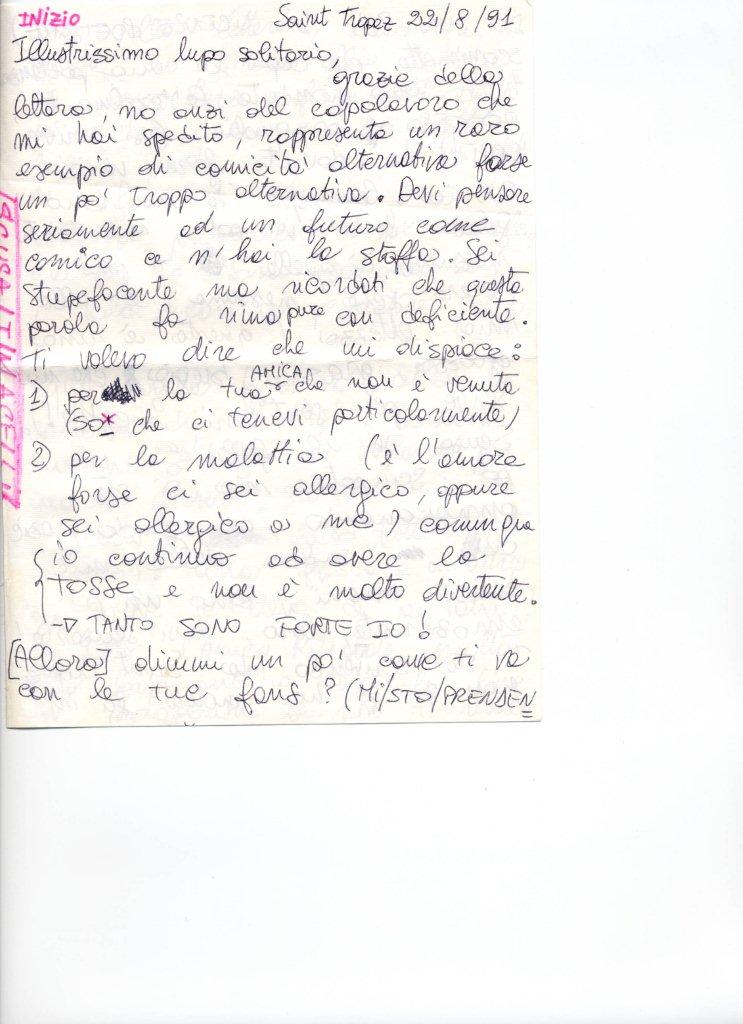 INIZIO
Saint Tropez 22/8/91
Illustrissimo lupo solitario,
grazie della
lettera, no anzi del capolavoro che
mi hai spedito, rappresenta un raro
esempio di comicità alternativa forse
un po' troppo alternativa. Devi pensare
seriamente ad un futuro come
comico ce n'hai la stoffa. Sei
stupefacente ma ricordati che questa
parola fa rima pure con deficiente.
Ti volevo dire che mi dispiace:
1) per la tua AMICA che non è venuta
(so* che ci tenevi particolarmente)
2) per la malattia (è l'amore
forse ci sei allergico, oppure
sei allergico a me) comunque
io continuo ad avere la
TOSSE e non è molto divertente.
→ TANTO SONO FORTE IO!
[Allora] dimmi un po' come ti va
con le tue fans? (MI/STO/PRENDEN